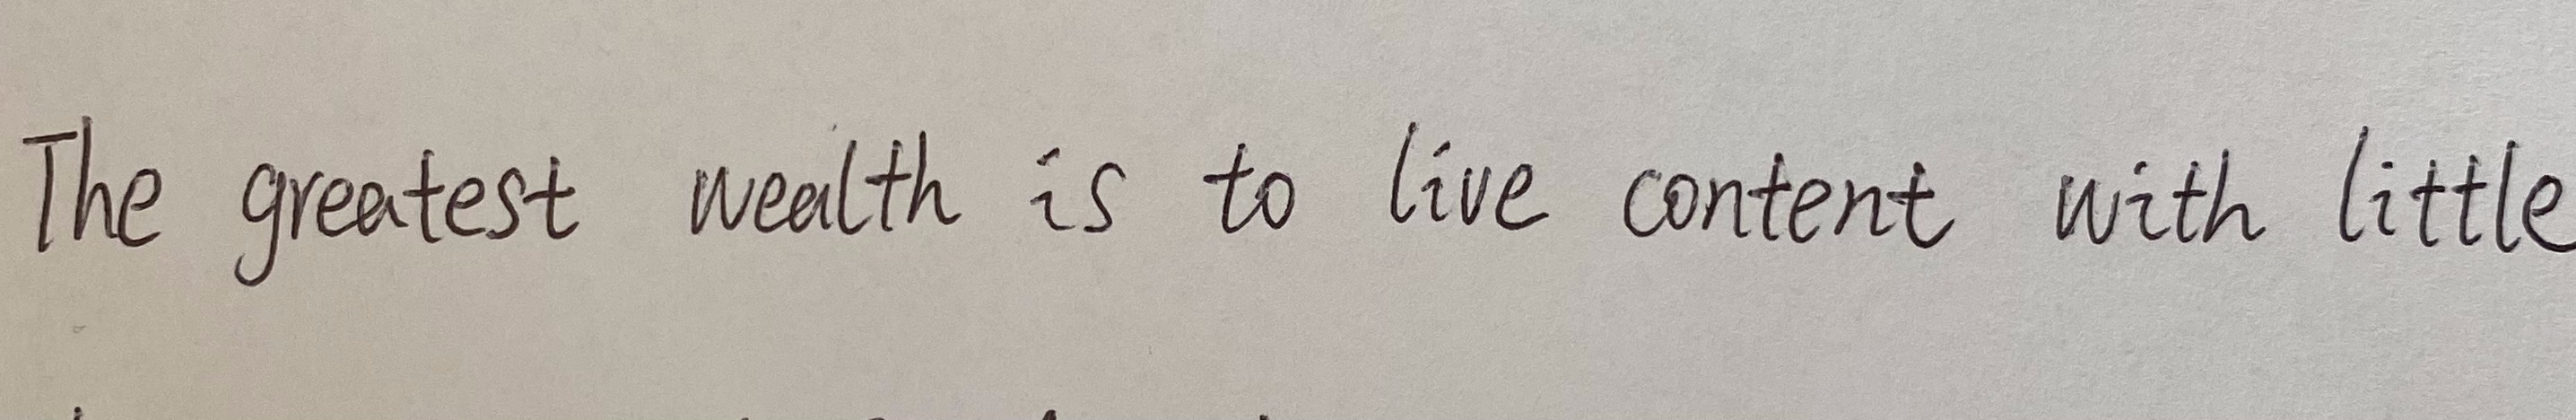 The greatest wealth is to live content with little